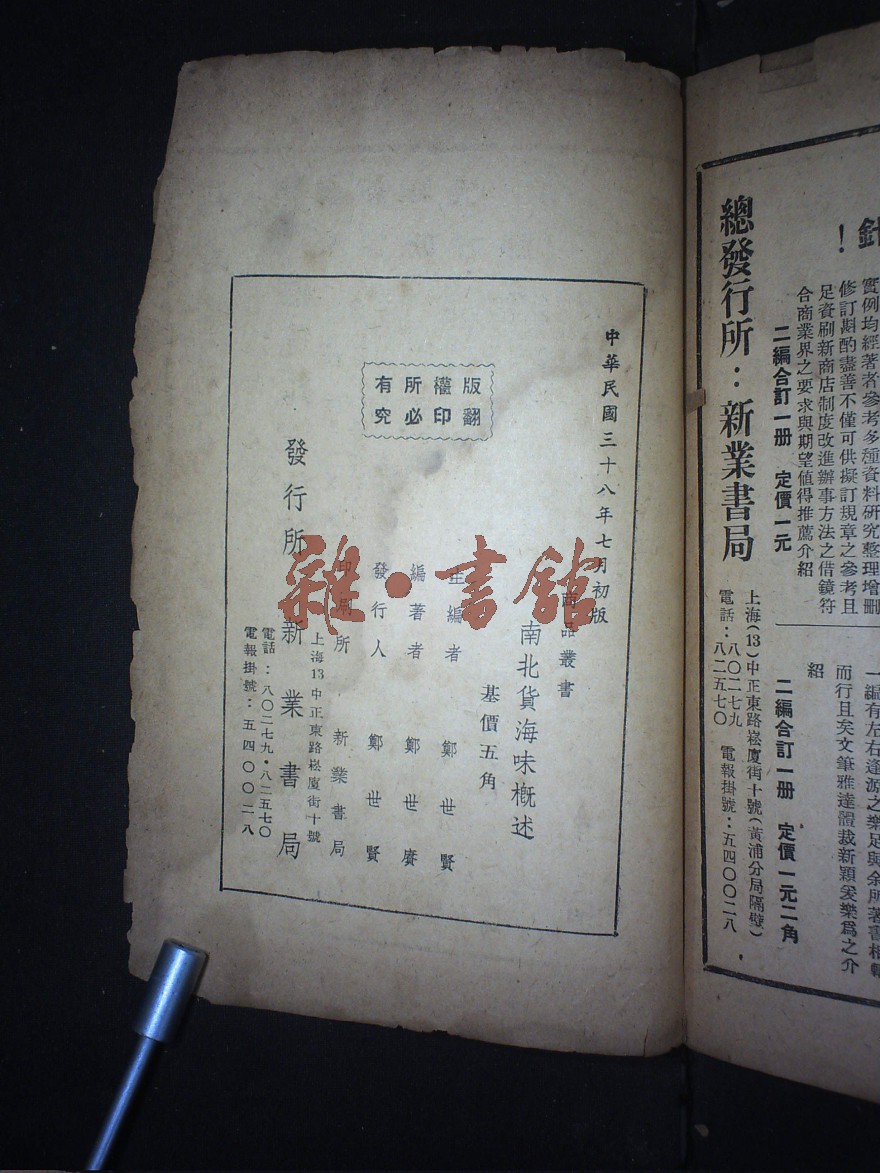 中華民國三十八年七月初版
商品叢書
南北貨海味概述
基價五角
主編者 鄭世賢
編著者 鄭世賡
發行人 鄭世賢
印刷所 新業書局
上海13中正東路崧廈街十號
發行所 新業書局
電話：八〇二七九·八二五七〇
電報掛號：五四〇〇二八
版權所有
翻印必究
雜·書館
針
！
實例均經著者參考多種資料研究整理增刪
修訂斟酌盡善不僅可供擬訂規章之參考且
足資刷新商店制度改進辦事方法之借鏡符
合商業界之要求與期望值得推薦介紹
二編合訂一册 定價一元
一編有左右逢源之樂足與余所著書相輔
而行且矣文筆雅達體裁新穎爰樂爲之介
紹
二編合訂一册 定價一元二角
總發行所：新業書局
上海(13)中正東路崧廈街十號(黃浦分局隔壁)
電話：八〇二七九 八二五七〇 電報掛號：五四〇〇二八